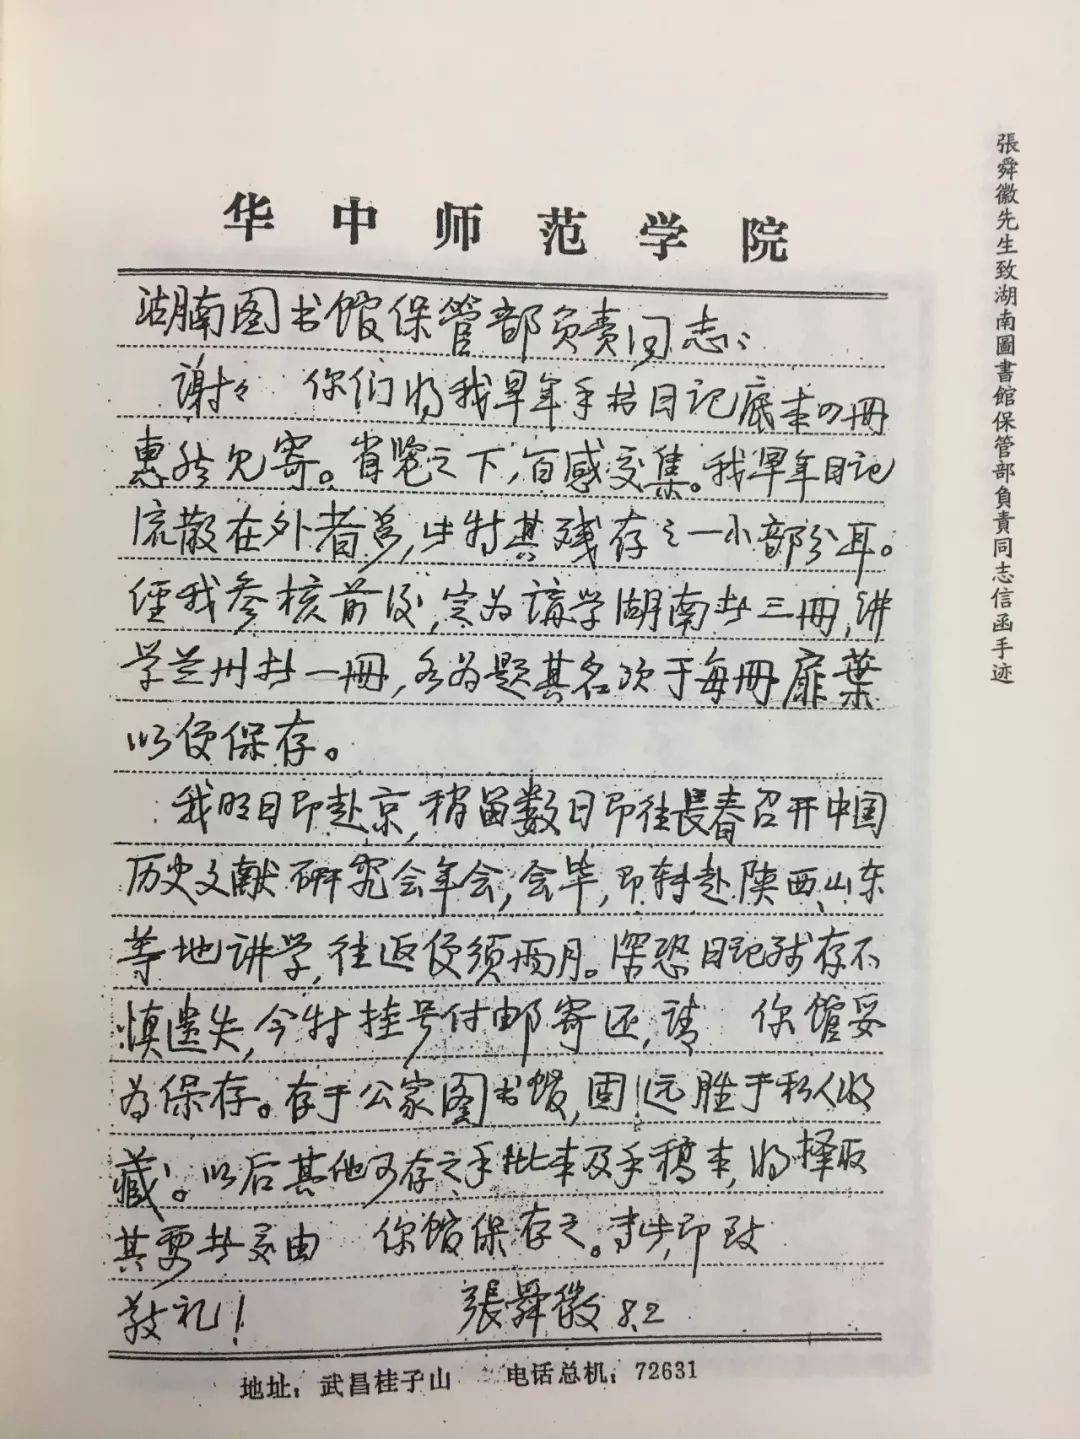 华中师范学院
湖南图书馆保管部负责同志：
谢々 你们将我早年手抄日记底本四册
惠然见寄。省览之下，百感交集。我早年日记
流散在外者多，此特其残存之一小部分耳。
经我参核前后，定为講学湖南者三冊，讲
学兰州者一冊，各为题其名次于每冊扉葉
以便保存。
我明日即赴京，稍留数日即往長春召开中国
历史文献研究会年会，会毕，即转赴陕西、山东
等地讲学，往返便须两月。深恐日记残存不
慎遗失，今特挂号付邮寄还，请 你馆妥
为保存。存于公家图书馆，固远胜于私人收
藏。以后其他可存之手批本及手稿本，将择取
其要者交由 你馆保存之。专此，即致
敬礼！ 張舜徽 8.2
地址：武昌桂子山 电话总机：72631
張舜徽先生致湖南圖書館保管部負責同志信函手迹